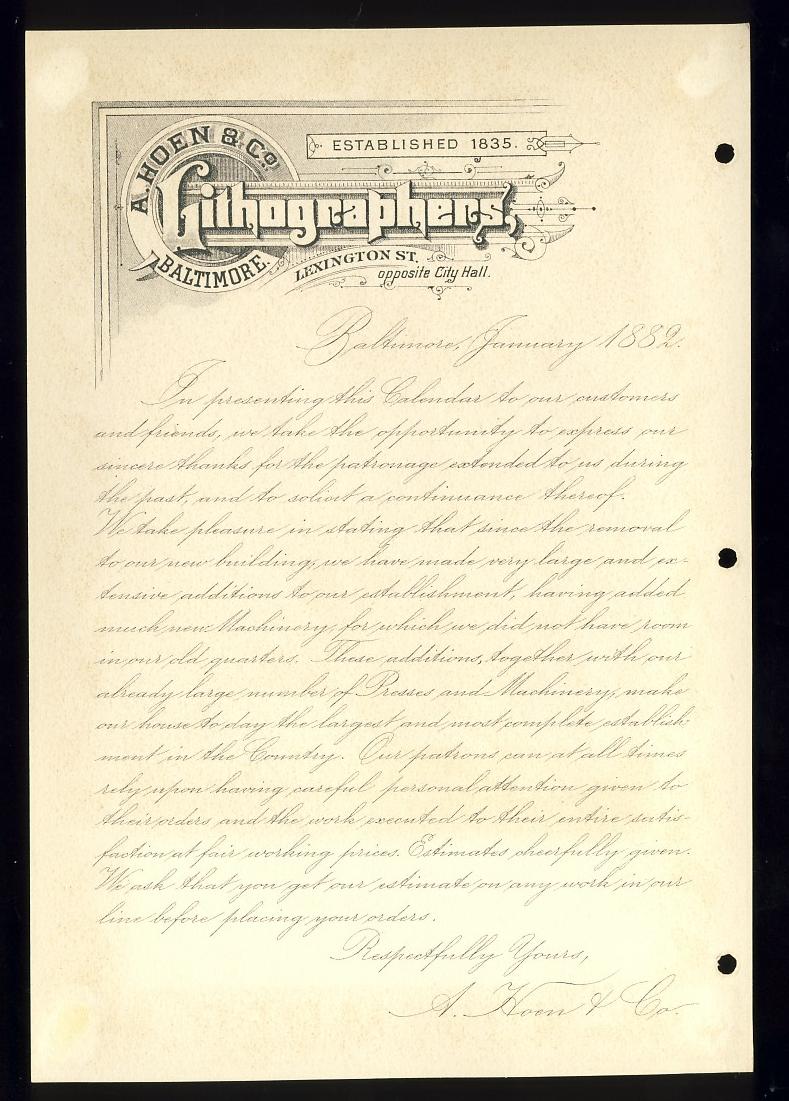 A. HOEN & Co.
ESTABLISHED 1835.
Lithographers,
BALTIMORE.
LEXINGTON ST,
opposite City Hall.
Baltimore, January 1882.
In presenting this Calendar to our customers
and friends, we take the opportunity to express our
sincere thanks for the patronage extended to us during
the past, and to solicit a continuance thereof.
We take pleasure in stating that since the removal
to our new building, we have made very large and ex-
tensive additions to our establishment, having added
much new Machinery, for which we did not have room
in our old quarters. These additions, together with our
already large number of Presses and Machinery, make
our house to day the largest and most complete establish-
ment in the Country. Our patrons can at all times
rely upon having careful personal attention given to
their orders and the work executed to their entire satis-
faction at fair working prices. Estimates cheerfully given.
We ask that you get our estimate on any work in our
line before placing your orders.
Respectfully Yours,
A. Hoen & Co.